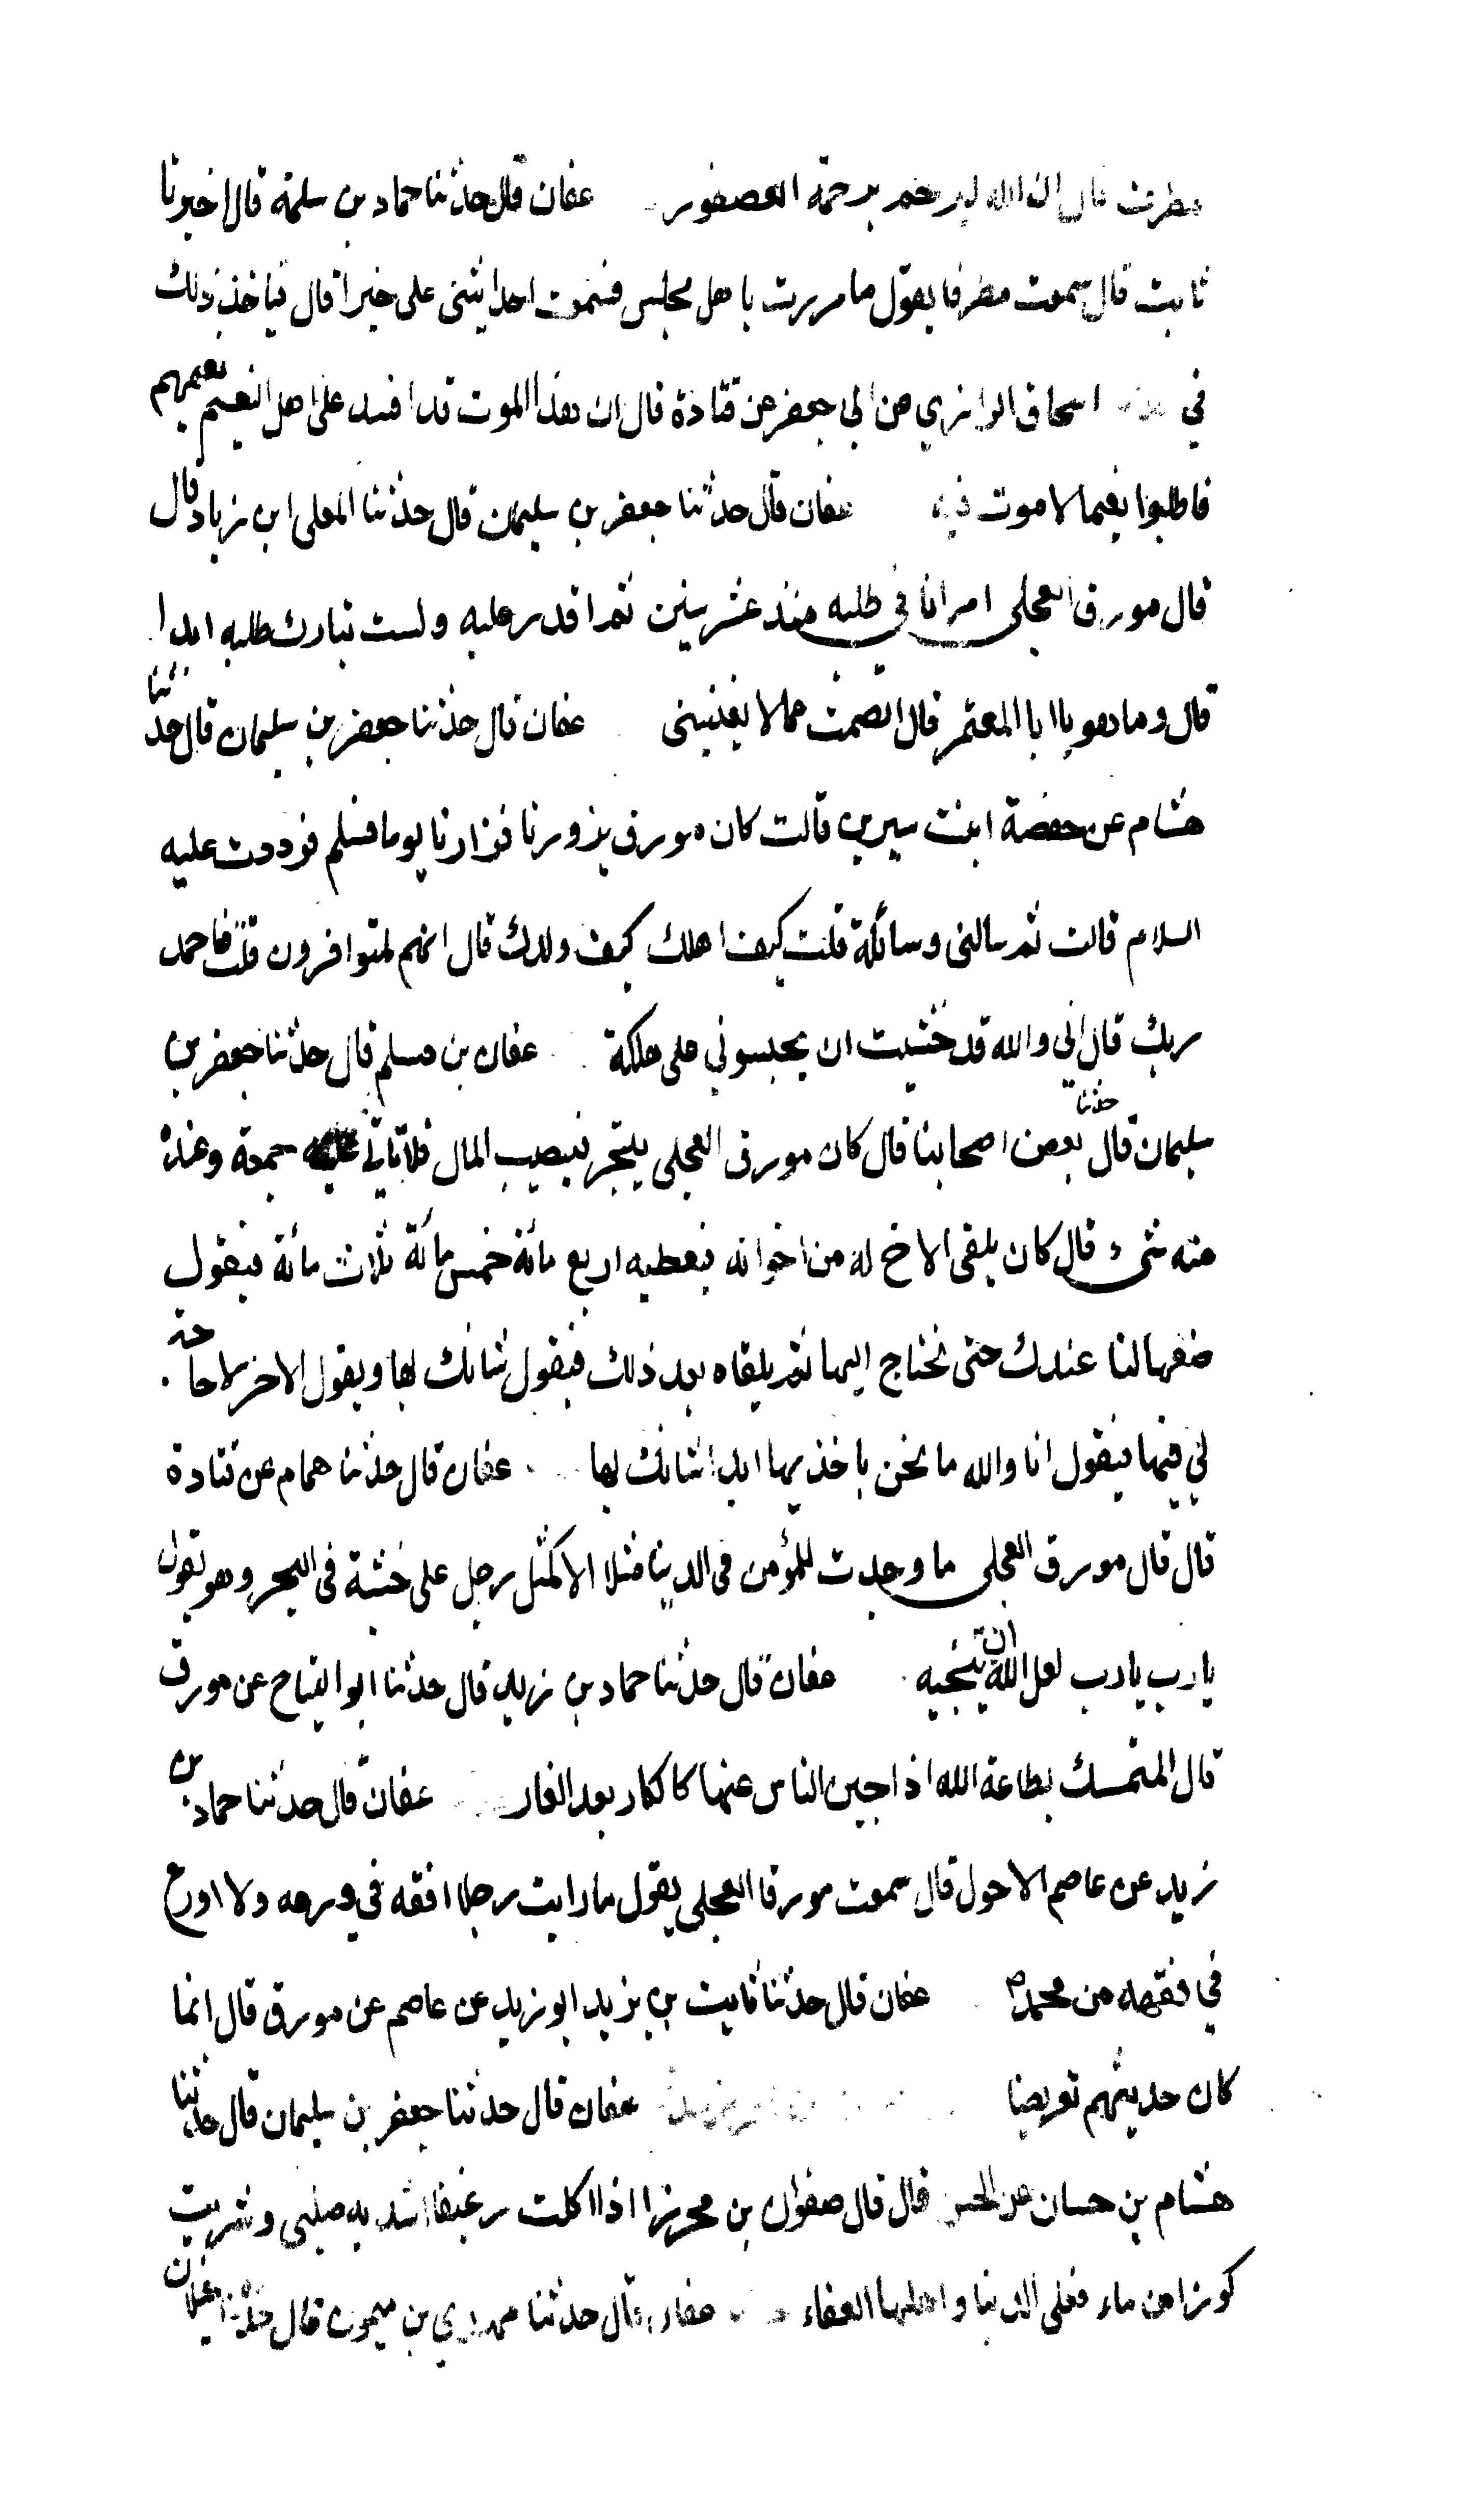 مطرف قال ان الله ليرحم برحمة العصفور عفان قال حدثنا حماد بن سلمة قال اخبرنا
ثابت قال سمعت مطرفا يقول ما مررت باهل مجلس فسمعت احدا يثنى على خيرا قال فياخذ ذلك
في اسحاق الرازي عن ابي جعفر عن قتادة قال ان هذا الموت قد افسد على اهل النعيم نعيمهم
فاطلبوا نعيما لا موت فيه عفان قال حدثنا جعفر بن سليمن قال حدثنا المعلى ابن زياد قال
قال مورق العجلى امر انا في طلبه منذ عشر سنين لم اقدر عليه ولست بتارك طلبه ابدا
قال وما هو يا ابا المعتمر قال الصمت عما لا يعنينى عفان قال حدثنا جعفر بن سليمان قال حدثنا
هشام عن حفصة ابنت سيرين قالت كان مورق يزورنا فزارنا يوما فسلم فرددت عليه
السلام قالت ثم سالنى وسائلة قلت كيف اهلك كيف ولدك قال انهم لمتوافرون قلت فاحمد
ربك قال اني والله قد خشيت ان يحبسوني على هلكة عفان بن مسلم قال حدثنا جعفر بن
سليمان قال حدثنا بعض اصحابنا قال كان مورق العجلى يتجر فيصيب المال فلا تاتي عليه جمعة وعنده
منه شىء قال كان يلقى الاخ له من اخوانه فيعطيه اربع مائة خمس مائة ثلاث مائة فيقول
ضعها لنا عندك حتى نحتاج اليها ثم يلقاه بعد ذلك فيقول شانك بها ويقول الاخر لا حاجة
لي فيها فيقول انا والله ما نحن باخذيها ابدا شانك بها عفان قال حدثنا همام عن قتادة
قال قال مورق العجلى ما وجدت للمؤمن في الدنيا مثلا الا كمثل رجل على خشبة في البحر وهو يقول
يا رب يا رب لعل الله ان ينجيه عفان قال حدثنا حماد بن زيد قال حدثنا ابو التياح عن مورق
قال المتمسك بطاعة الله اذا جبن الناس عنها كالكار بعد الفار عفان قال حدثنا حماد بن
زيد عن عاصم الاحول قال سمعت مورقا العجلى يقول ما رايت رجلا افقه في ورعه ولا اورع
في فقهه من محمد عفان قال حدثنا ثابت بن يزيد ابو زيد عن عاصم عن مورق قال انما
كان حديثهم تعريضا عفان قال حدثنا جعفر بن سليمان قال حدثنا
هشام بن حسان عن الحسن قال قال صفوان بن محرز اذا اكلت رغيفا اشد به صلبى وشربت
كوزا من ماء فعلى الدنيا واهلها العفاء عفان قال حدثنا مهدي بن ميمون قال حدثنا غيلان